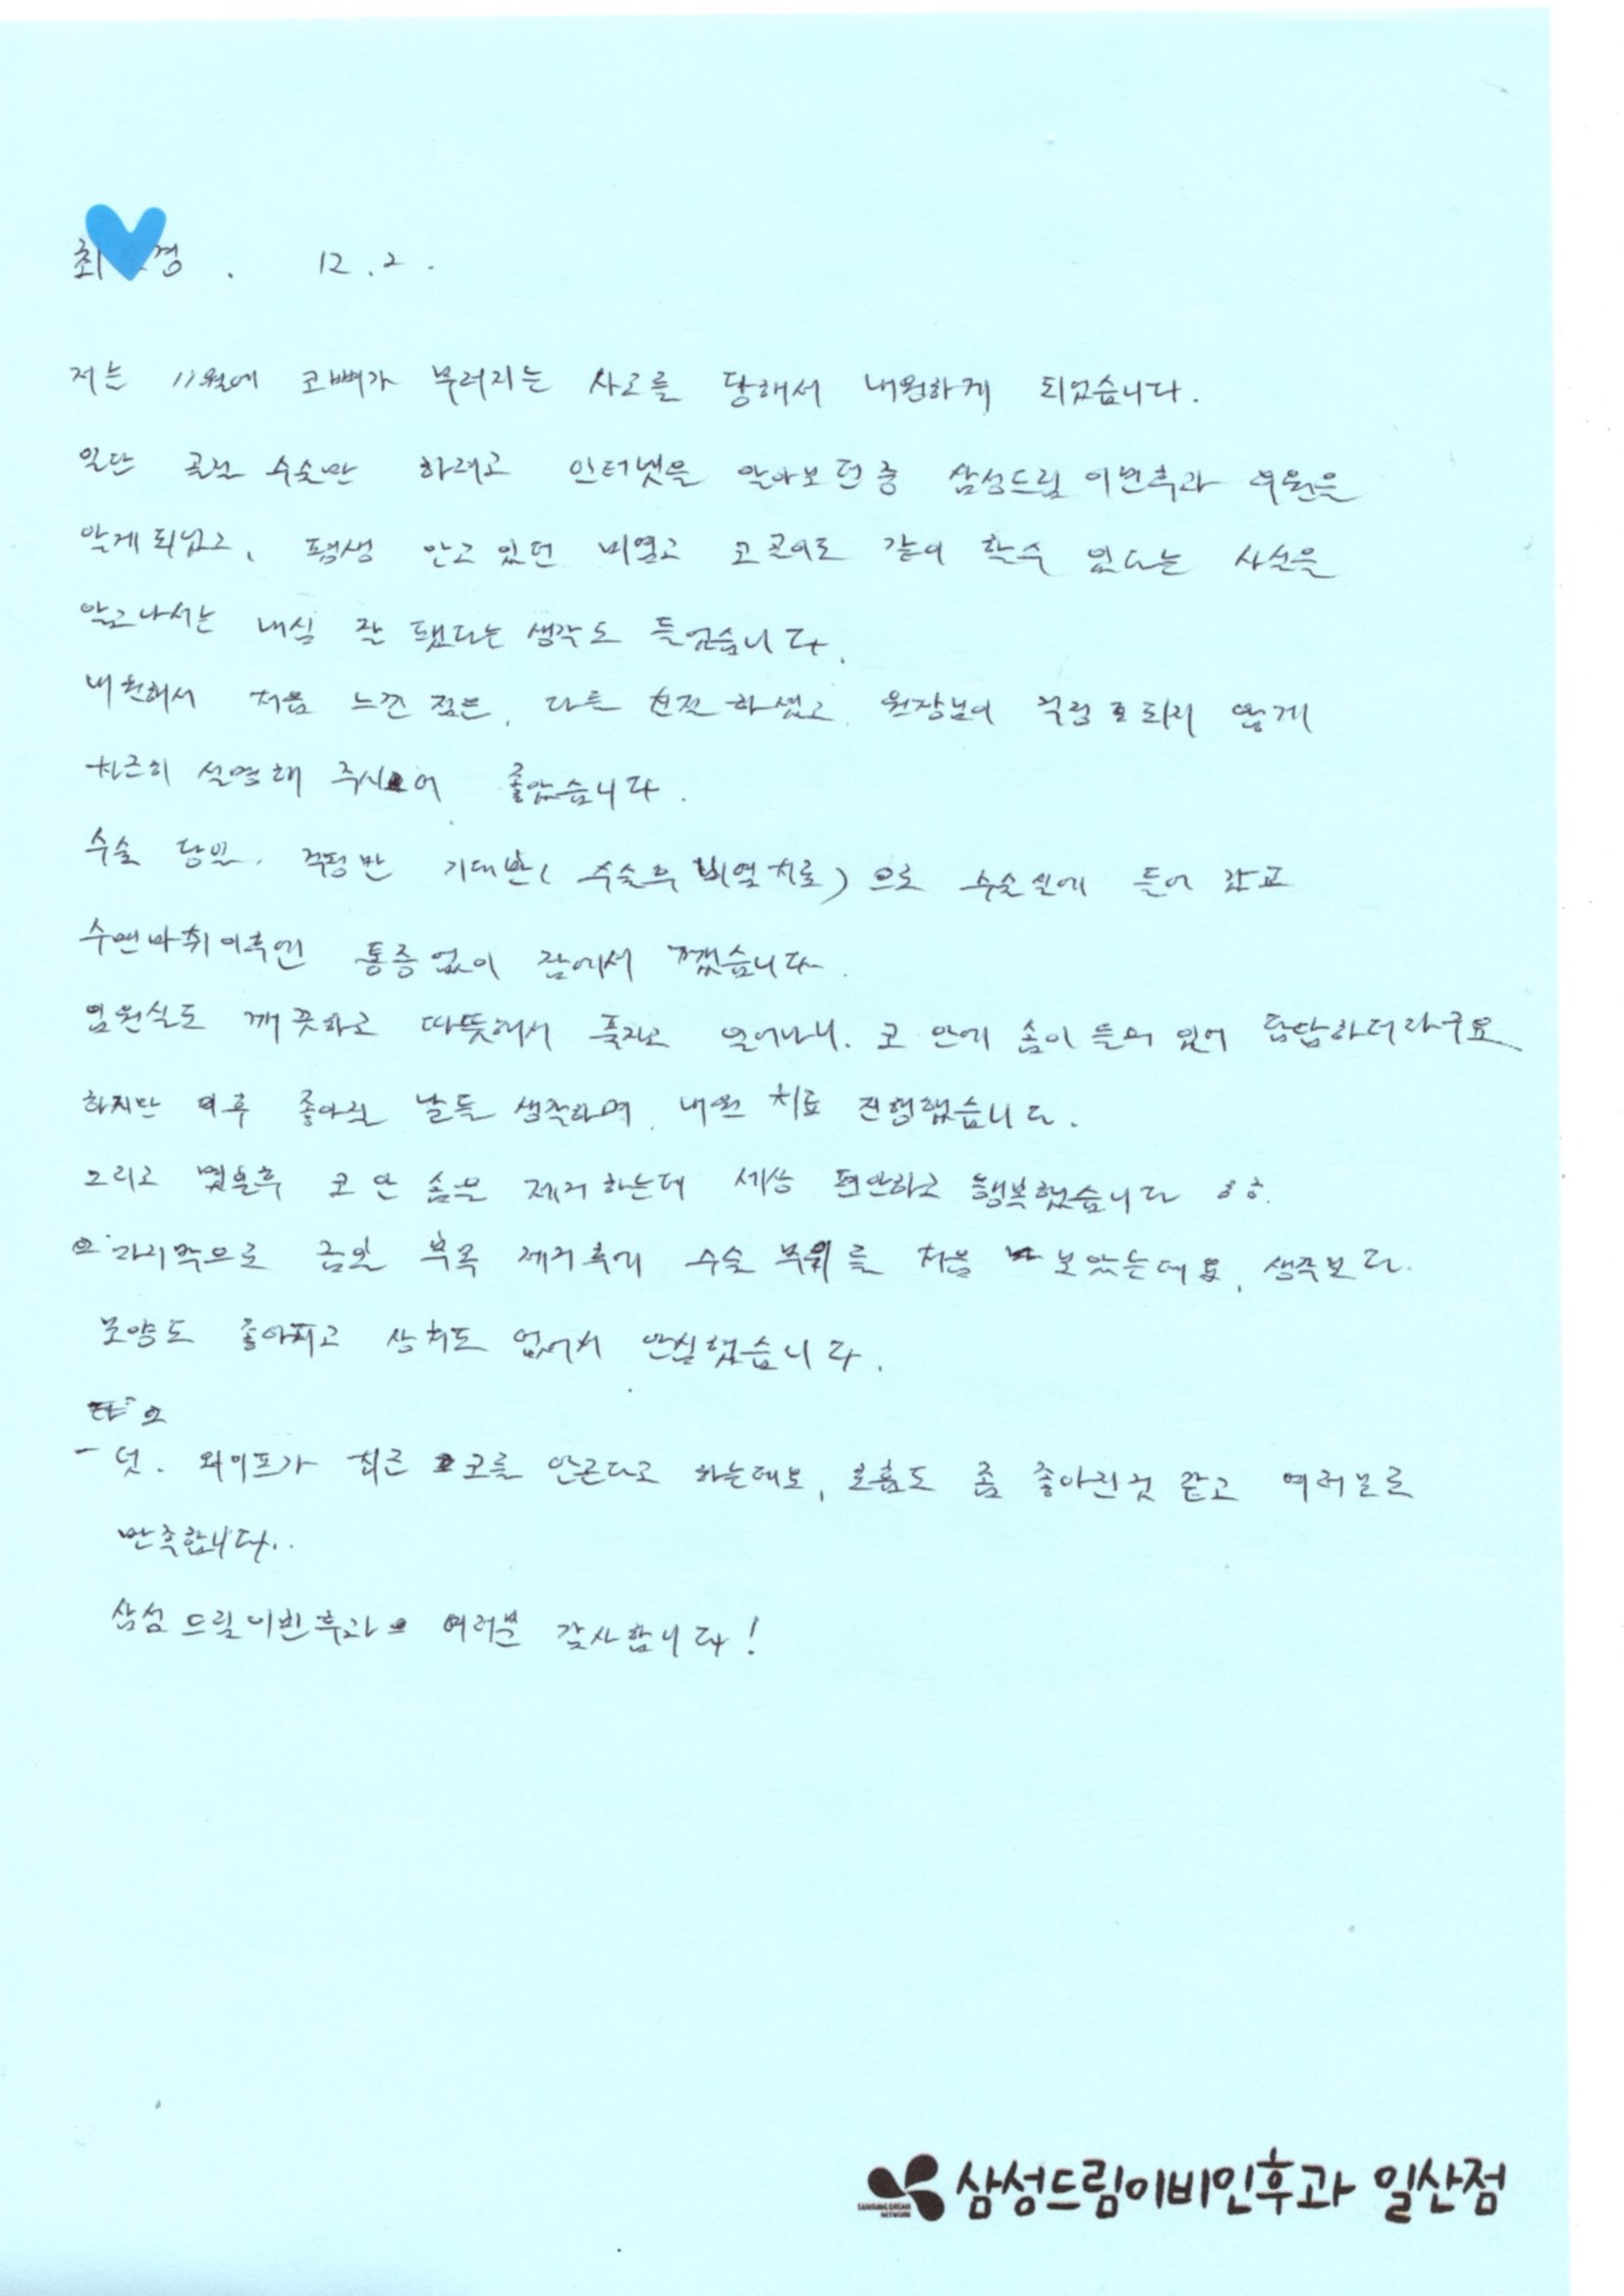 최 경. 12.2.
저는 11월에 코뼈가 부러지는 사고를 당해서 내원하게 되었습니다.
일단 골절 수술만 하려고 인터넷을 알아보던 중 삼성드림이빈후과 병원을
알게되었고, 평생 안고 있던 비염과 코골이도 같이 할수 있다는 사실을
알고나서는 내심 잘 됐다는 생각도 들었습니다.
내원해서 처음 느낀 점은, 다들 친절하셨고 원장님이 걱정 되지 않게
차근히 설명해 주시어 좋았습니다.
수술 당일, 걱정반 기대반(수술후 비염치료)으로 수술실에 들어 갔고
수면마취이후엔 통증없이 잠에서 깼습니다.
입원실도 깨끗하고 따뜻해서 푹자고 일어나니. 코 안에 솜이 들어 있어 답답하더라구요
하지만 이후 좋아질 날들 생각하며, 내원 치료 진행했습니다.
그리고 몇일후 코 안 솜을 제거하는데 세상 편안하고 행복했습니다 ㅎㅎ.
마지막으로 금일 부목 제거후에 수술 부위를 처음 보았는데요, 생각보다
모양도 좋아지고 상처도 없어서 안심했습니다.
- 덧. 와이프가 최근 코를 안곤다고 하는데요, 호흡도 좀 좋아진것 같고 여러모로
만족합니다..
삼성드림이빈후과 여러분 감사합니다!
SAMSUNG DREAM NETWORK
삼성드림이비인후과 일산점